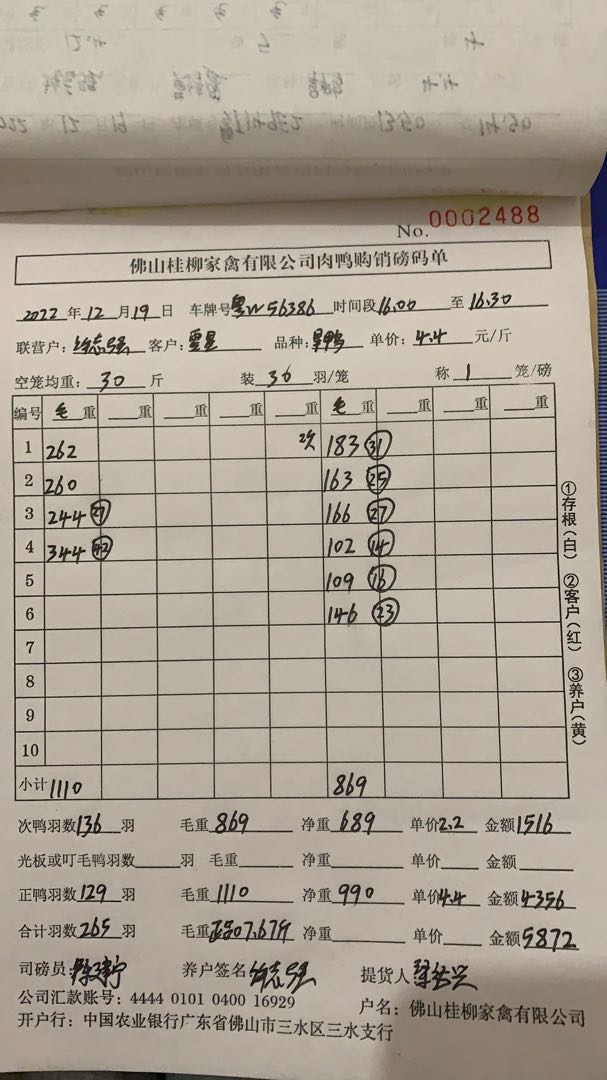 No. 0002488
佛山桂柳家禽有限公司肉鸭购销磅码单
2022年12月19日 车牌号粤W56386 时间段16.00至16.30
联营户: 志强 客户: 品种: 单价: 4.4元/斤
空笼均重: 30斤 装36羽/笼 称1笼/磅
编号 毛重 重 重 重 毛重 重 重 重
1 262 次 183 31
2 260 163 25
3 244 27 166 27
4 344 42 102 14
5 109 16
6 146 23
7
8
9
10
小计 1110 869
次鸭羽数136羽 毛重869 净重689 单价2.2 金额1516
光板或叮毛鸭羽数 羽 毛重 净重 单价 金额
正鸭羽数129羽 毛重1110 净重990 单价4.4 金额4356
合计羽数265羽 毛重 7.67斤 净重 单价 金额5872
司磅员: 养户签名 志强 提货人
公司汇款账号: 4444 0101 0400 16929 户名: 佛山桂柳家禽有限公司
开户行: 中国农业银行广东省佛山市三水区三水支行
①存根(白) ②客户(红) ③养户(黄)